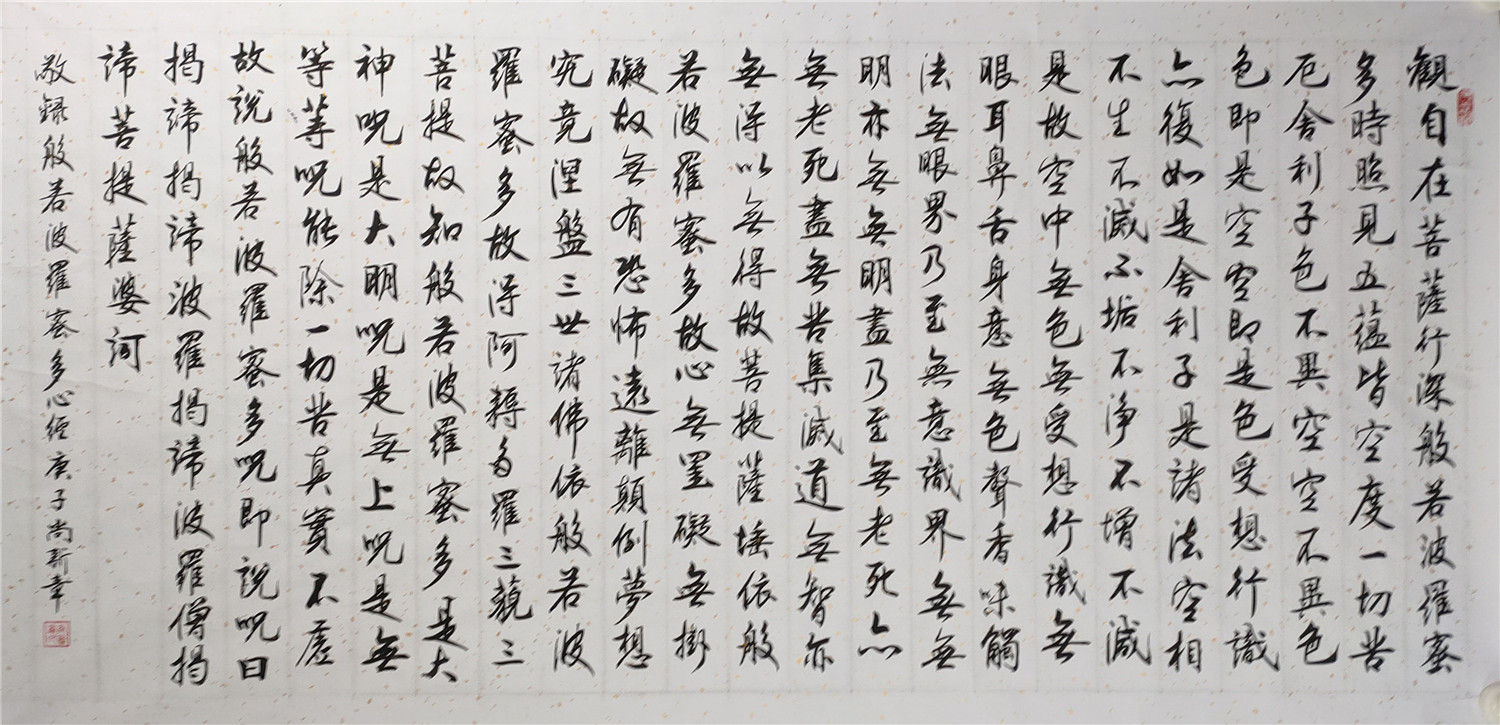 觀自在菩薩行深般若波羅蜜
多時照見五蘊皆空度一切苦
厄舍利子色不異空空不異色
色即是空空即是色受想行識
亦復如是舍利子是諸法空相
不生不滅不垢不淨不增不減
是故空中無色無受想行識無
眼耳鼻舌身意無色聲香味觸
法無眼界乃至無意識界無無
明亦無無明盡乃至無老死亦
無老死盡無苦集滅道無智亦
無得以無得故菩提薩埵依般
若波羅蜜多故心無罣礙無掛
礙故無有恐怖遠離顛倒夢想
究竟涅盤三世諸佛依般若波
羅蜜多故得阿耨多羅三藐三
菩提故知般若波羅蜜多是大
神咒是大明咒是無上咒是無
等等咒能除一切苦真實不虛
故說般若波羅蜜多咒即說咒曰
揭諦揭諦波羅揭諦波羅僧揭
諦菩提薩婆訶
敬録般若波羅蜜多心經庚子尚新章